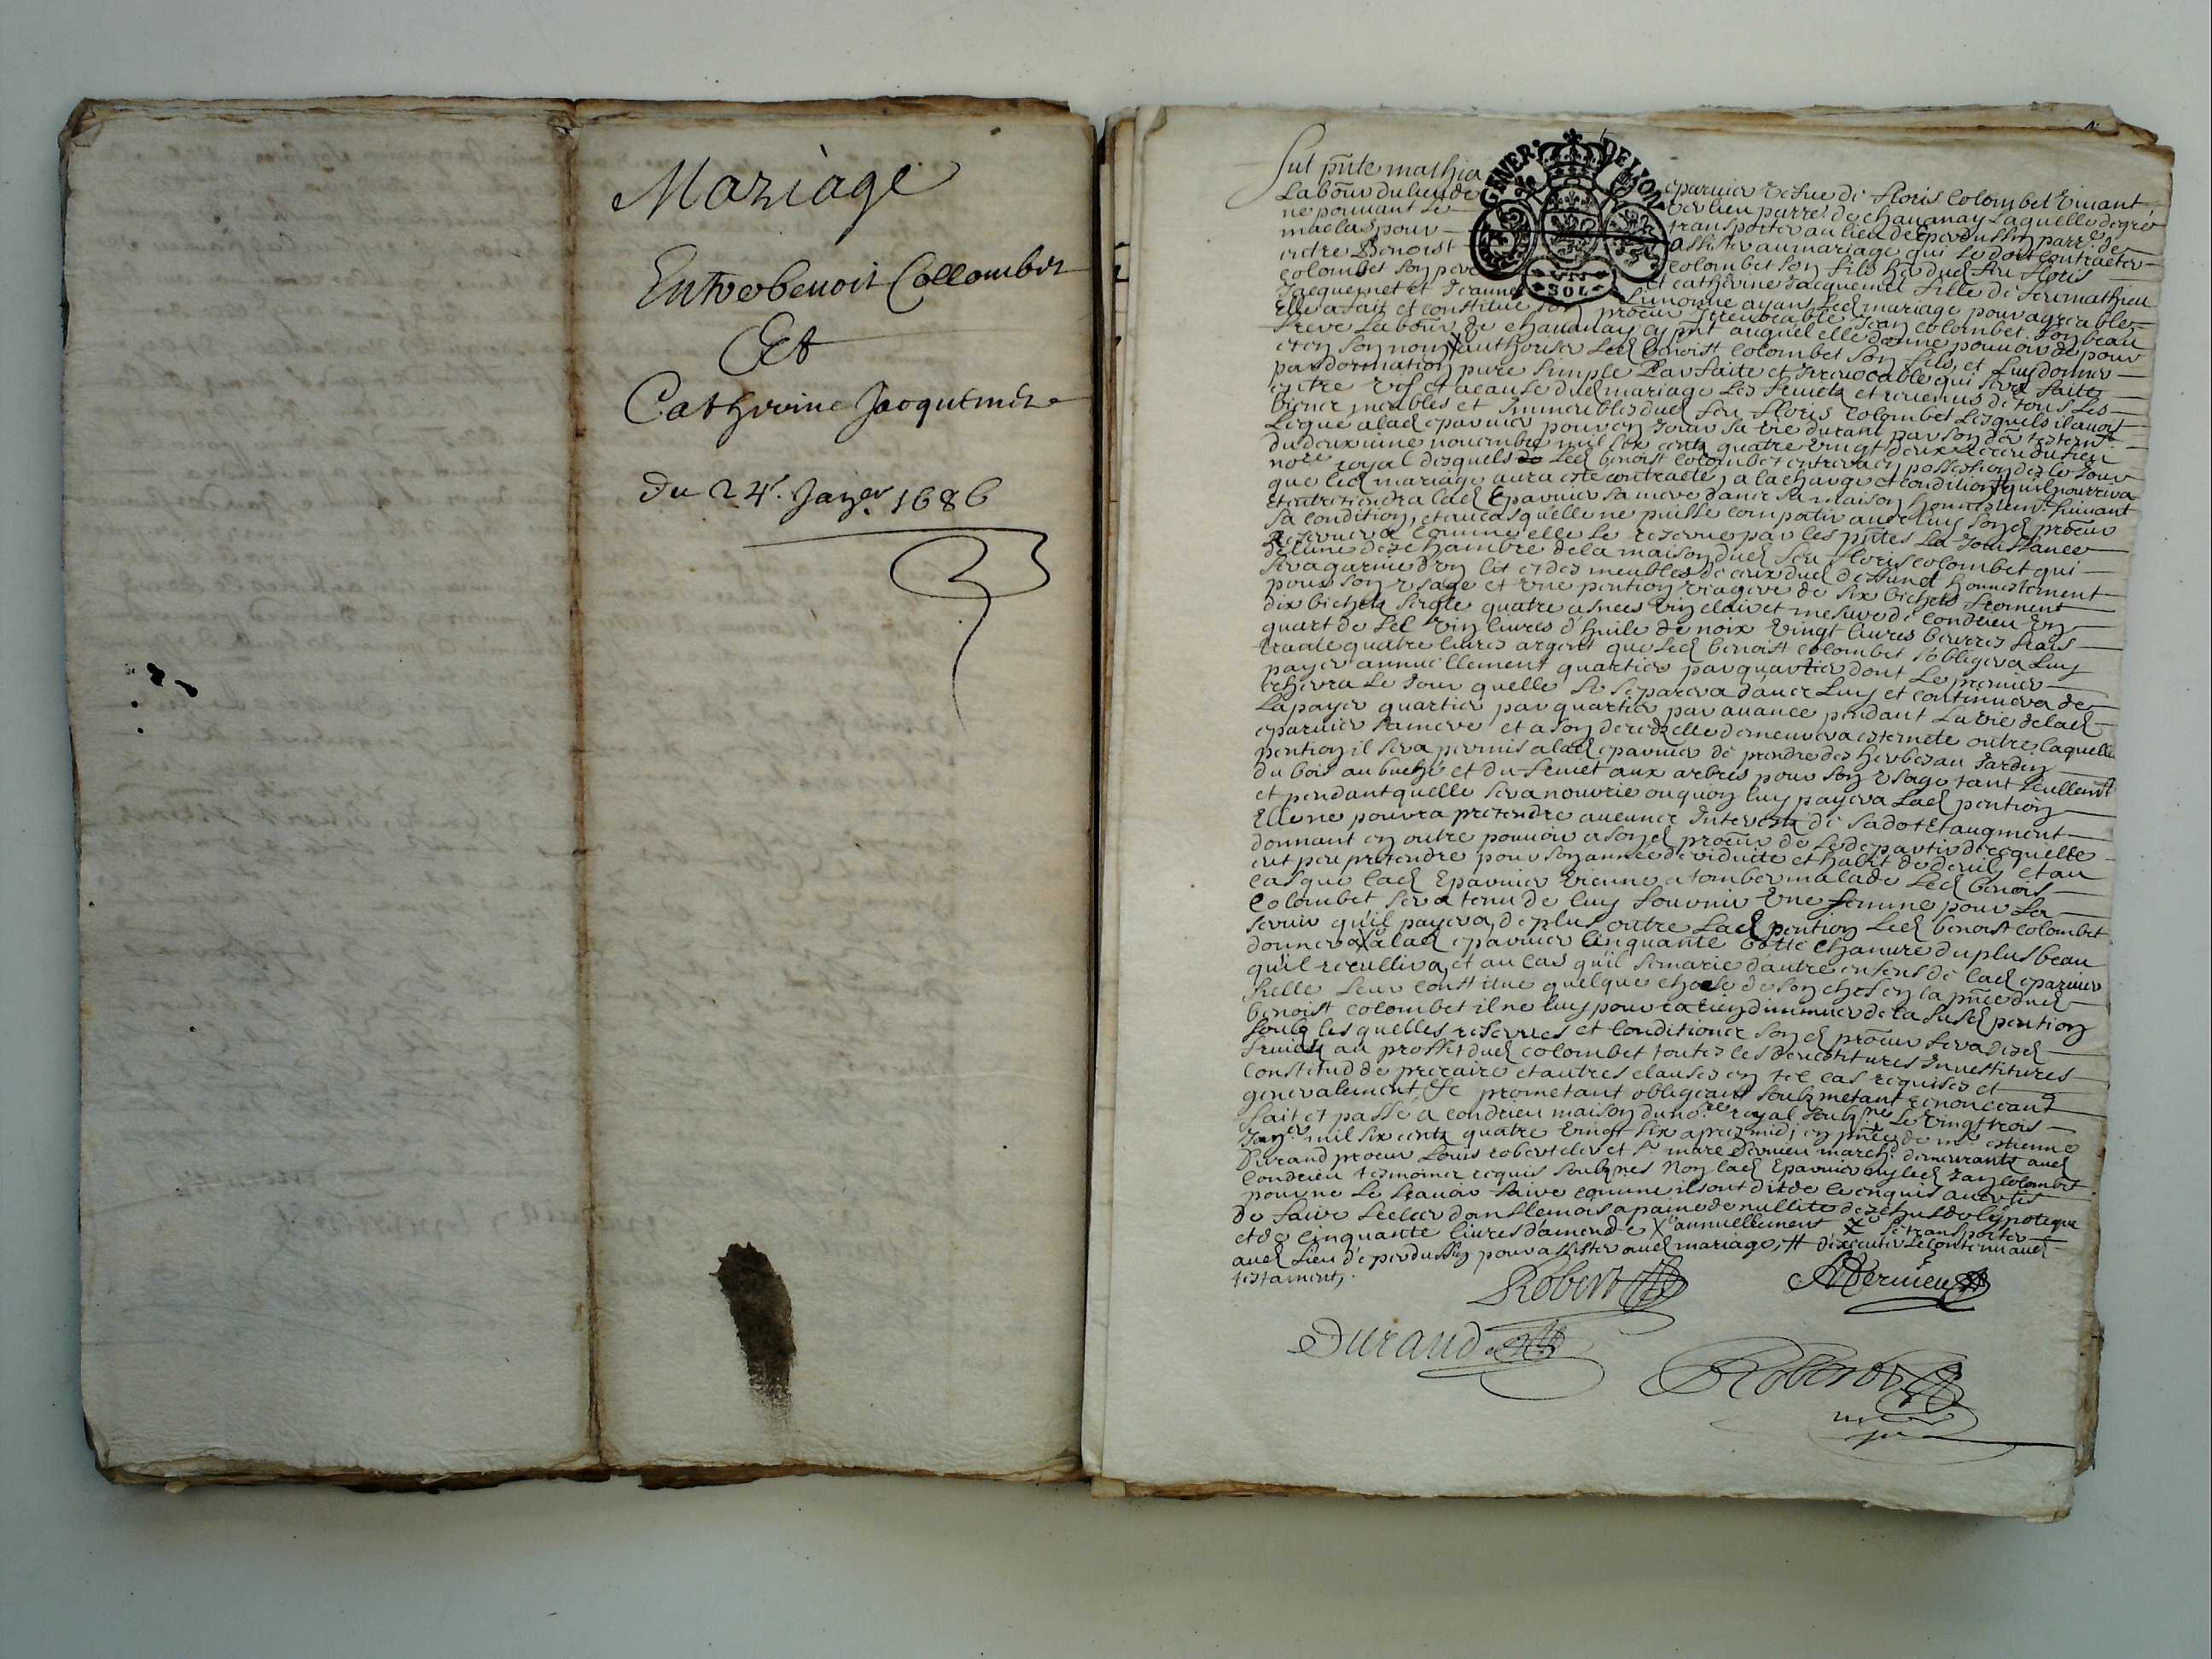 Mariage
Entre benoit Collombet
Et
Catherine Jacquemet
du 24e. Janer 1686
GENER. DE LYON
VN SOL
fut pnte mathia eparnier vefue de floris Colombet viuant
Labour du lieu de verlieu parre. de chauanay Laquelle de gré
ne pouuant se transporter au lieu de Eperdussin parre de
maclas pour assister au mariage qui se doit contracter
entre Benoist Colombet son fils & dud feu floris
colombet son pere et catherine Jacquemet fille de feu mathieu
Jacquemet et Jeanne Limonne ayant led mariage pour agreable
Elle a fait et constitue son procur Irreuocable Jean colombet son beau
frere Labour de chauanay cy pnt auquel elle donne pouuoir de pour
et en son nom X authoriser Led benoist Colombet son fils, et Luy donner
par donnation pure simple Parfaite et Irreuocable qui sera faitte
entre vifs et a cause dud mariage Les fruicts et reuenus de tous Les
biens meubles et Immeubles dud feu floris Colombet Lesquels il auoit
Legué a lad eparnier pour en Jouir sa vie durant par son der testamt
du deuxieme nouembre mil six cents quatre vingt deux receu du sieu
nore royal desquels Led benoist colombet entrera en possession des le Jour
que led mariage aura esté contracté, a la charge et condition # qu'il nourrira
et entretiendra lad Eparnier sa mere dans sa maison honnestemt suiuant
sa condition, et au cas qu'elle ne puisse compatir auec luy son d procur
Reseruera comme elle se reserue par les pntes La Jouissance
de l'une des chambre de la maison dud feu floris colombet qui
sera garnie d'un lit et des meubles de ceux dud deffunct honnestement
pour son vsage et vne pention viagere de six bichets froment
dix bichets seigle quatre asnees vin clairet mesure de Condrieu vn
quart de sel vin liures d'huile de noix vingt liures beurres frais
trante quatre liures argent que led benoist colombet s'obligera Luy
payer annuellement quartier par quartier dont Le premier
echerra Le Jour quelle se separera d'auec Luy et continuera de
La payer quartier par quartier par auance pendant La vie de lad
eparnier sa mere et a son decedz elle demeurera esteinte outre laquelle
pention il sera permis a lad eparnier de prendre des herbes au Jardin
du bois au buché et du fruict aux arbres pour son vsage tant seullemt
et pendant quelle sera nourrie ou quon luy payera Lad pention
Elle ne pourra pretendre aucuns Interests de sa dot et augment
donnant en outre pouuoir a son d procur de se departir de ce quelle
eut peu pretendre pour son année de viduite et habit de deuil, et au
cas que lad Eparnier vienne a tomber malade Led benoist
Colombet sera tenu de luy fournir vne femme pour La
seruir qu'il payera, de plus outre Lad pention Led benoist colombet
donnera X a lad eparnier cinquante botte chanure du plus beau
qu'il recullira, et au cas qu'il se marie d'autre enfens de lad eparnier
& elle Leur constitue quelque chose de son chef en la pnce dud
benoist colombet il ne luy pourra rien diminuer de la susd pention
soubz lesquelles reserues et Conditions son d procur sera desd
fruicts au proffit dud colombet toutes les deuestitures Inuestitures
Constitud de precaire et autres clauses en tel cas requises et
generalement, &c prometant obligeant soubzmetant renonceant
fait et passé a condrieu maison du nore royal soubzne Le vingt trois
Janer mil six cents quatre vingt six apres midj en pnce de me. estienne
Durand procur Louis robert clerc et sr marc Deruieu march. demeurants aud
Condrieu tesmoins requis soubznes Non lad Eparnier ny led Jan colombet
pour ne Le scauoir faire comme ils ont dit de ce enquis auertis
de faire sceler dans le mois a paine de nullité des chef de lypoteque
et de cinquante liures d'amende X annuellement X se transporter
aud Lieu de perdussin pour assister aud mariage, # d'executer Le contenu aud
testament,
Robert ADeruieu
Durand
Robert